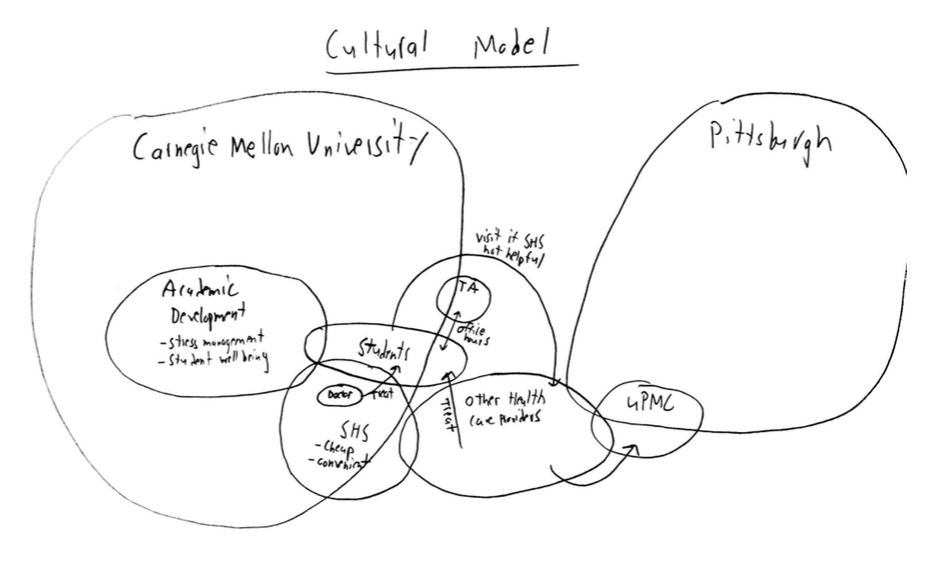 Cultural Model
Carnegie Mellon University
Pittsburgh
visit if SHS
not helpful
TA
office
hours
Academic
Development
-stress management
-student well being
Students
Doctor
Treat
SHS
-cheap
-convenient
Treat
other Health
care Providers
UPMC